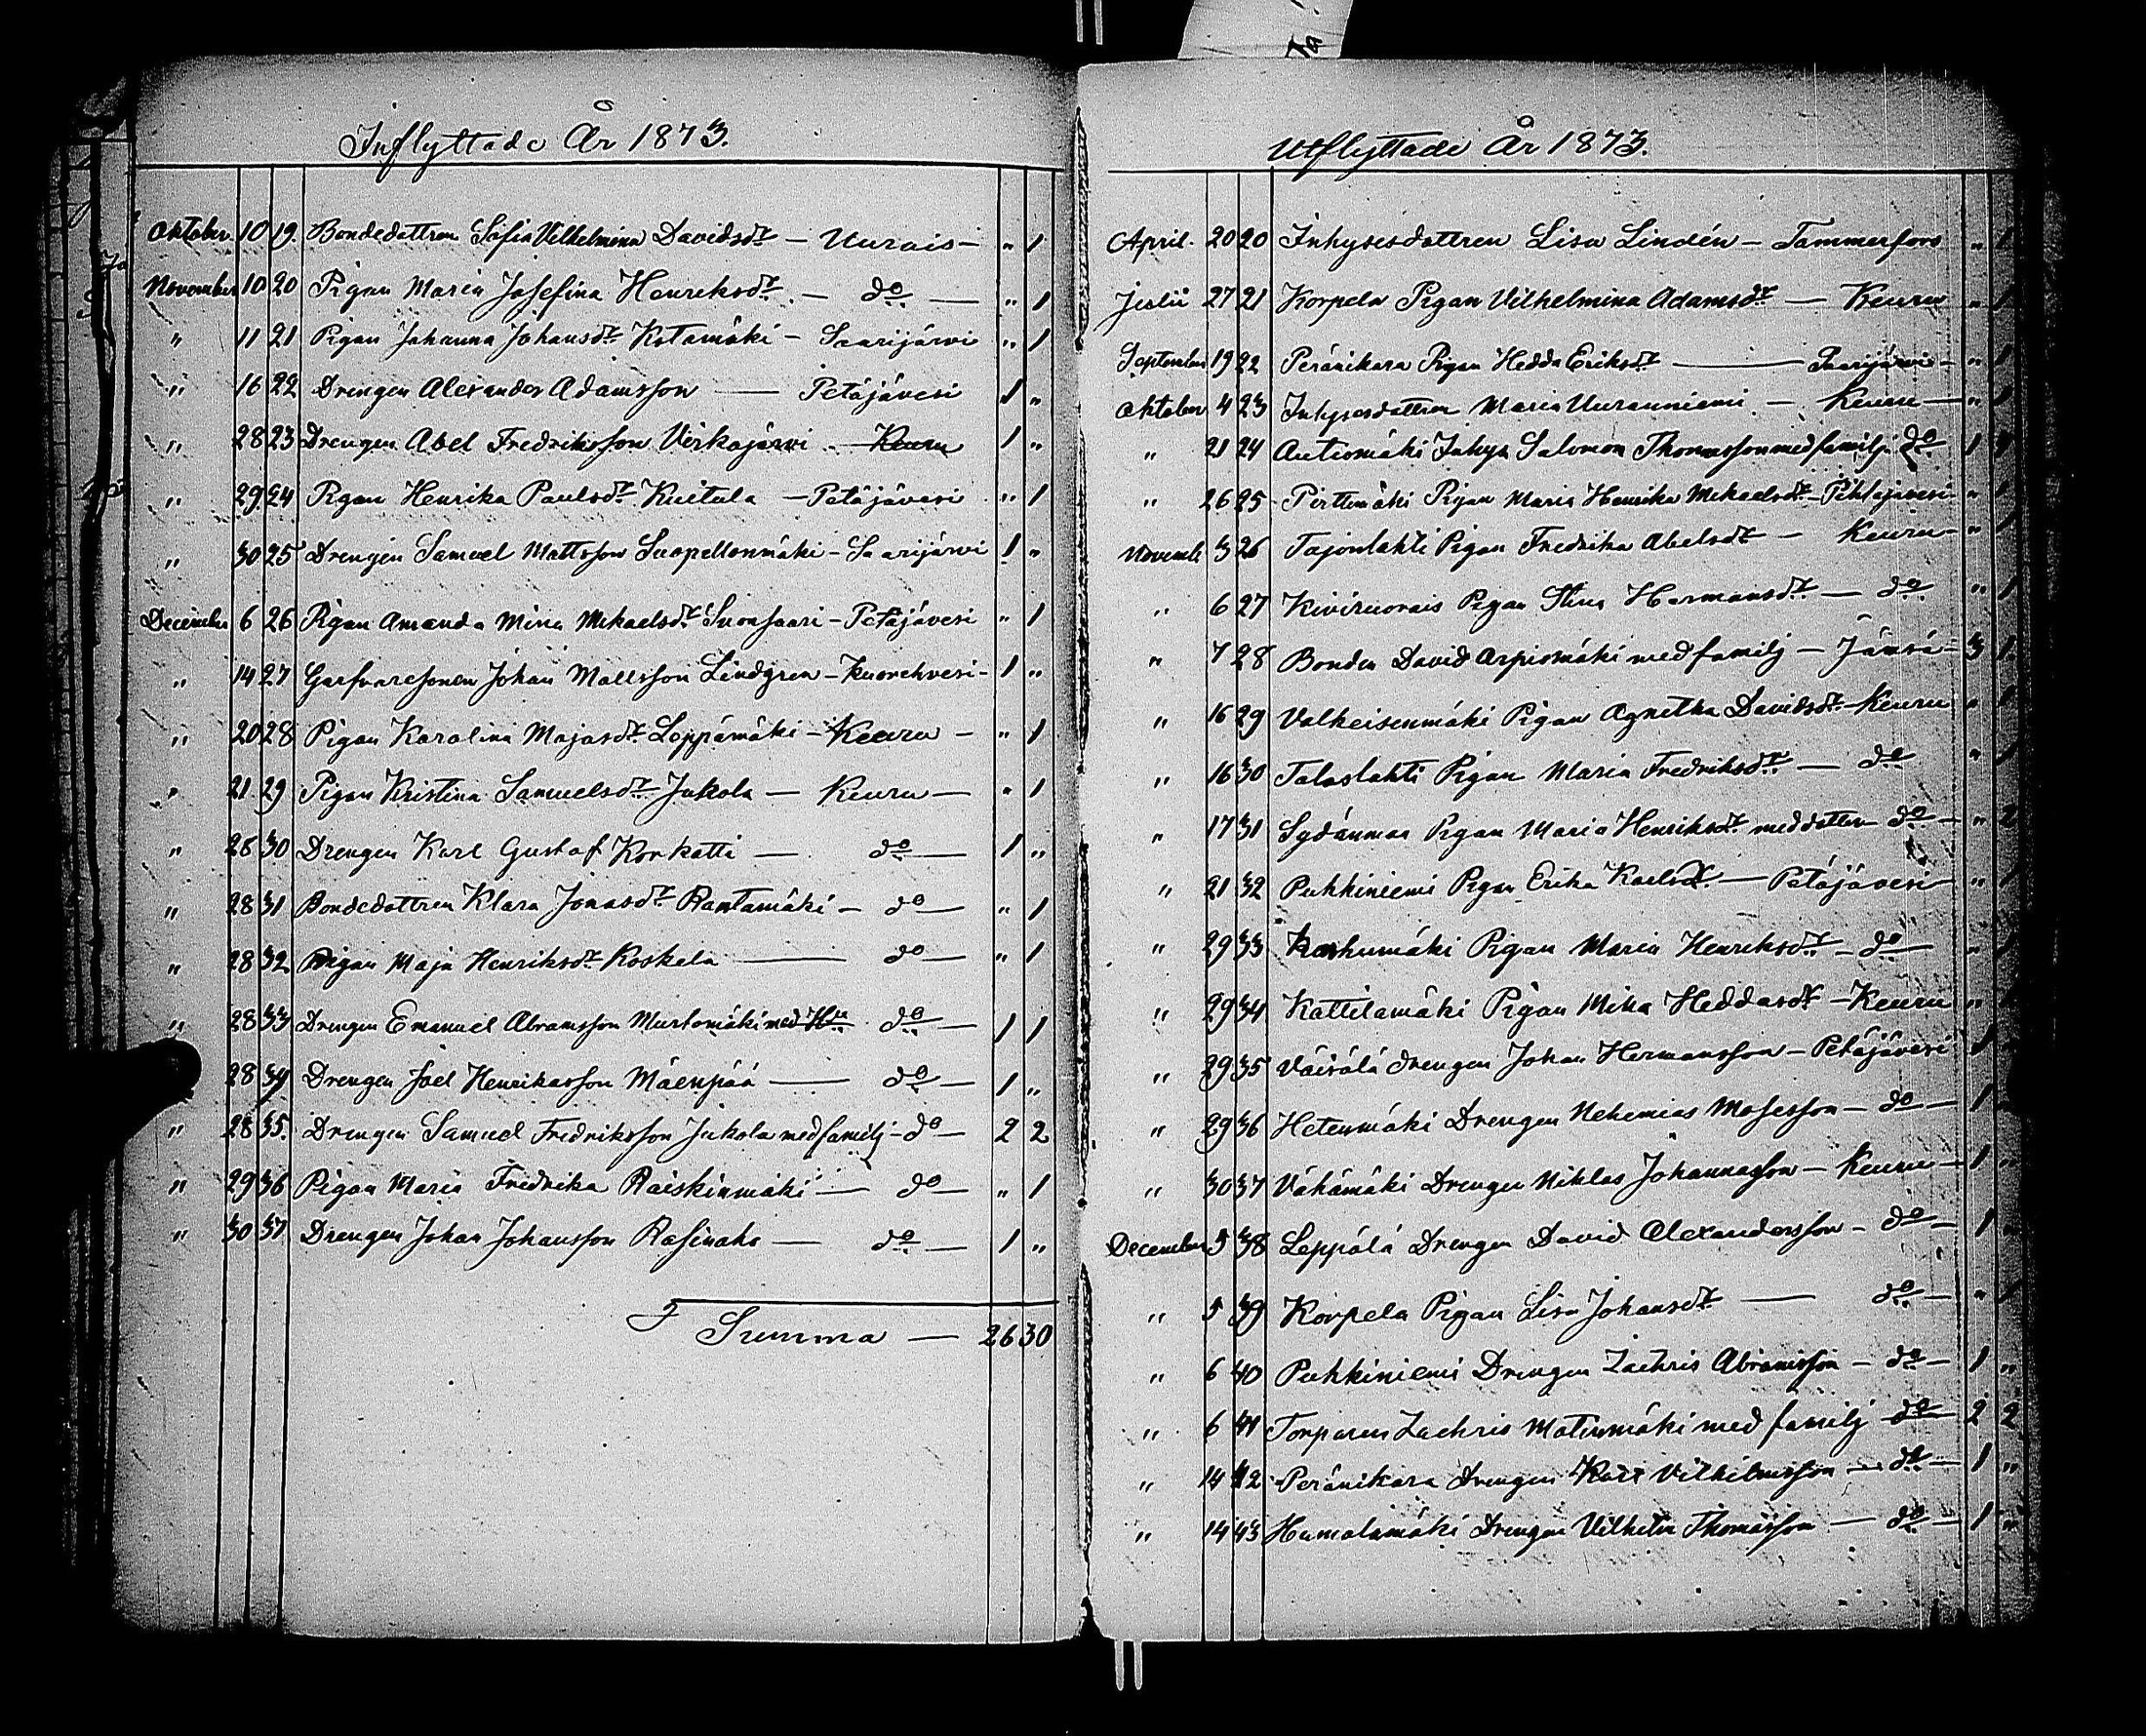 Inflyttade År 1873.
Oktober 10 19. Bondedottren Sofia Vilhelmina Davidsdr – Uurais – " 1
November 10 20 Pigan Maria Josefina Henriksdr. – do. — " 1
" 11 21 Pigan Johanna Johansdr. Kotamäki – Saarijärvi " 1
" 16 22 Drengen Alexander Adamsson — Petäjävesi 1 "
" 28 23 Drengen Abel Fredriksson Virkajärvi – Keuru 1 "
" 29 24 Pigan Henrika Paulsdr. Kuitula – Petäjävesi " 1
" 30 25 Drengen Samuel Mattsson Suopellonmäki – Saarijärvi 1 "
December 6 26 Pigan Amanda Mina Mikaelsdr. Suonsaari – Petäjävesi " 1
" 14 27 Garfvaresonen Johan Mattsson Lindgren – Kuorehvesi – 1 "
" 20 28 Pigan Karolina Majasdr. Leppämäki – Keuru – " 1
" 21 29 Pigan Kristina Samuelsdr. Jukola – Keuru – " 1
" 28 30 Drengen Karl Gustaf Korkatti — do. — 1 "
" 28 31 Bondedottren Klara Jonasdr. Rantamäki – do — " 1
" 28 32 Pigan Maja Henriksdr. Koskela — do — " 1
" 28 33 Drengen Emanuel Abramsson Murtomäki med Hu do. — 1 1
" 28 34 Drengen Joel Henriksson Mäenpää — do. — 1 "
" 28 35. Drengen Samuel Fredriksson Jukola med familj – do — 2 2
" 29 36 Pigan Maria Fredrika Raiskinmäki — do — " 1
" 30 37 Drengen Johan Johansson Rasinaho — do. — 1 "
Summa — 26 30
Utflyttade År 1873.
April. 20 20 Inhysesdottren Lisa Lindén – Tammerfors " 1
Julii 27 21 Korpela Pigan Vilhelmina Adamsdr — Keuru " 1
September 19 22 Peränikara Pigan Hedda Eriksdr. — Saarijärvi – " 1
Oktober 4 23 Inhysesdottren Maria Uurauniemi – Keuru — " 1
" 21 24 Autiomäki Inhys Salomon Thomasson med familj. do 1
" 26 25 Pirttimäki Pigan Maria Henrika Mikaelsdr. – Petäjävesi " 1
Novemb. 3 26 Tajonlahti Pigan Fredrika Abelsdr. – Keuru – " 1
" 6 27 Kiviruorais Pigan Stina Hermansdr. — do. " 1
" 7 28 Bonden David Arpiomäki med familj – Jämsä – 3 1.
" 16 29 Valkeisenmäki Pigan Agnetha Davidsdr. – Keuru " 1
" 16 30 Talaslahti Pigan Maria Fredriksdr. — do " 1
" 17 31 Sydänmaa Pigan Maria Henriksdr. med dotter do — " 2
" 21 32 Puhkiniemi Pigan Erika Karlsdr. — Petäjävesi " 1
" 29 33 Karhumäki Pigan Maria Henriksdr. – do — " 1
" 29 34 Kattilamäki Pigan Mina Heddasdr – Keuru " 1
" 29 35 Väisälä drengen Johan Hermansson – Petäjävesi 1 "
" 29 36 Hetenmäki Drengen Nehemias Mosesson – do — 1 "
" 30 37 Vähämäki Drengen Niklas Johannasson – Keuru – 1 "
December 5 38 Leppälä Drengen David Alexandersson – do. — 1 "
" 5 39 Korpela Pigan Lisa Johansdr. — do. — " 1
" 6 40 Puhkiniemi Drengen Zachris Abramsson – do. — 1 "
" 6 41 Torparen Zachris Matinmäki med familj do. 2 2
" 14 42 Peränikara Drengen Karl Vilhelmsson — do. — 1 "
" 14 43 Humalamäki Drengen Vilhelm Thomasson — do. — 1 "